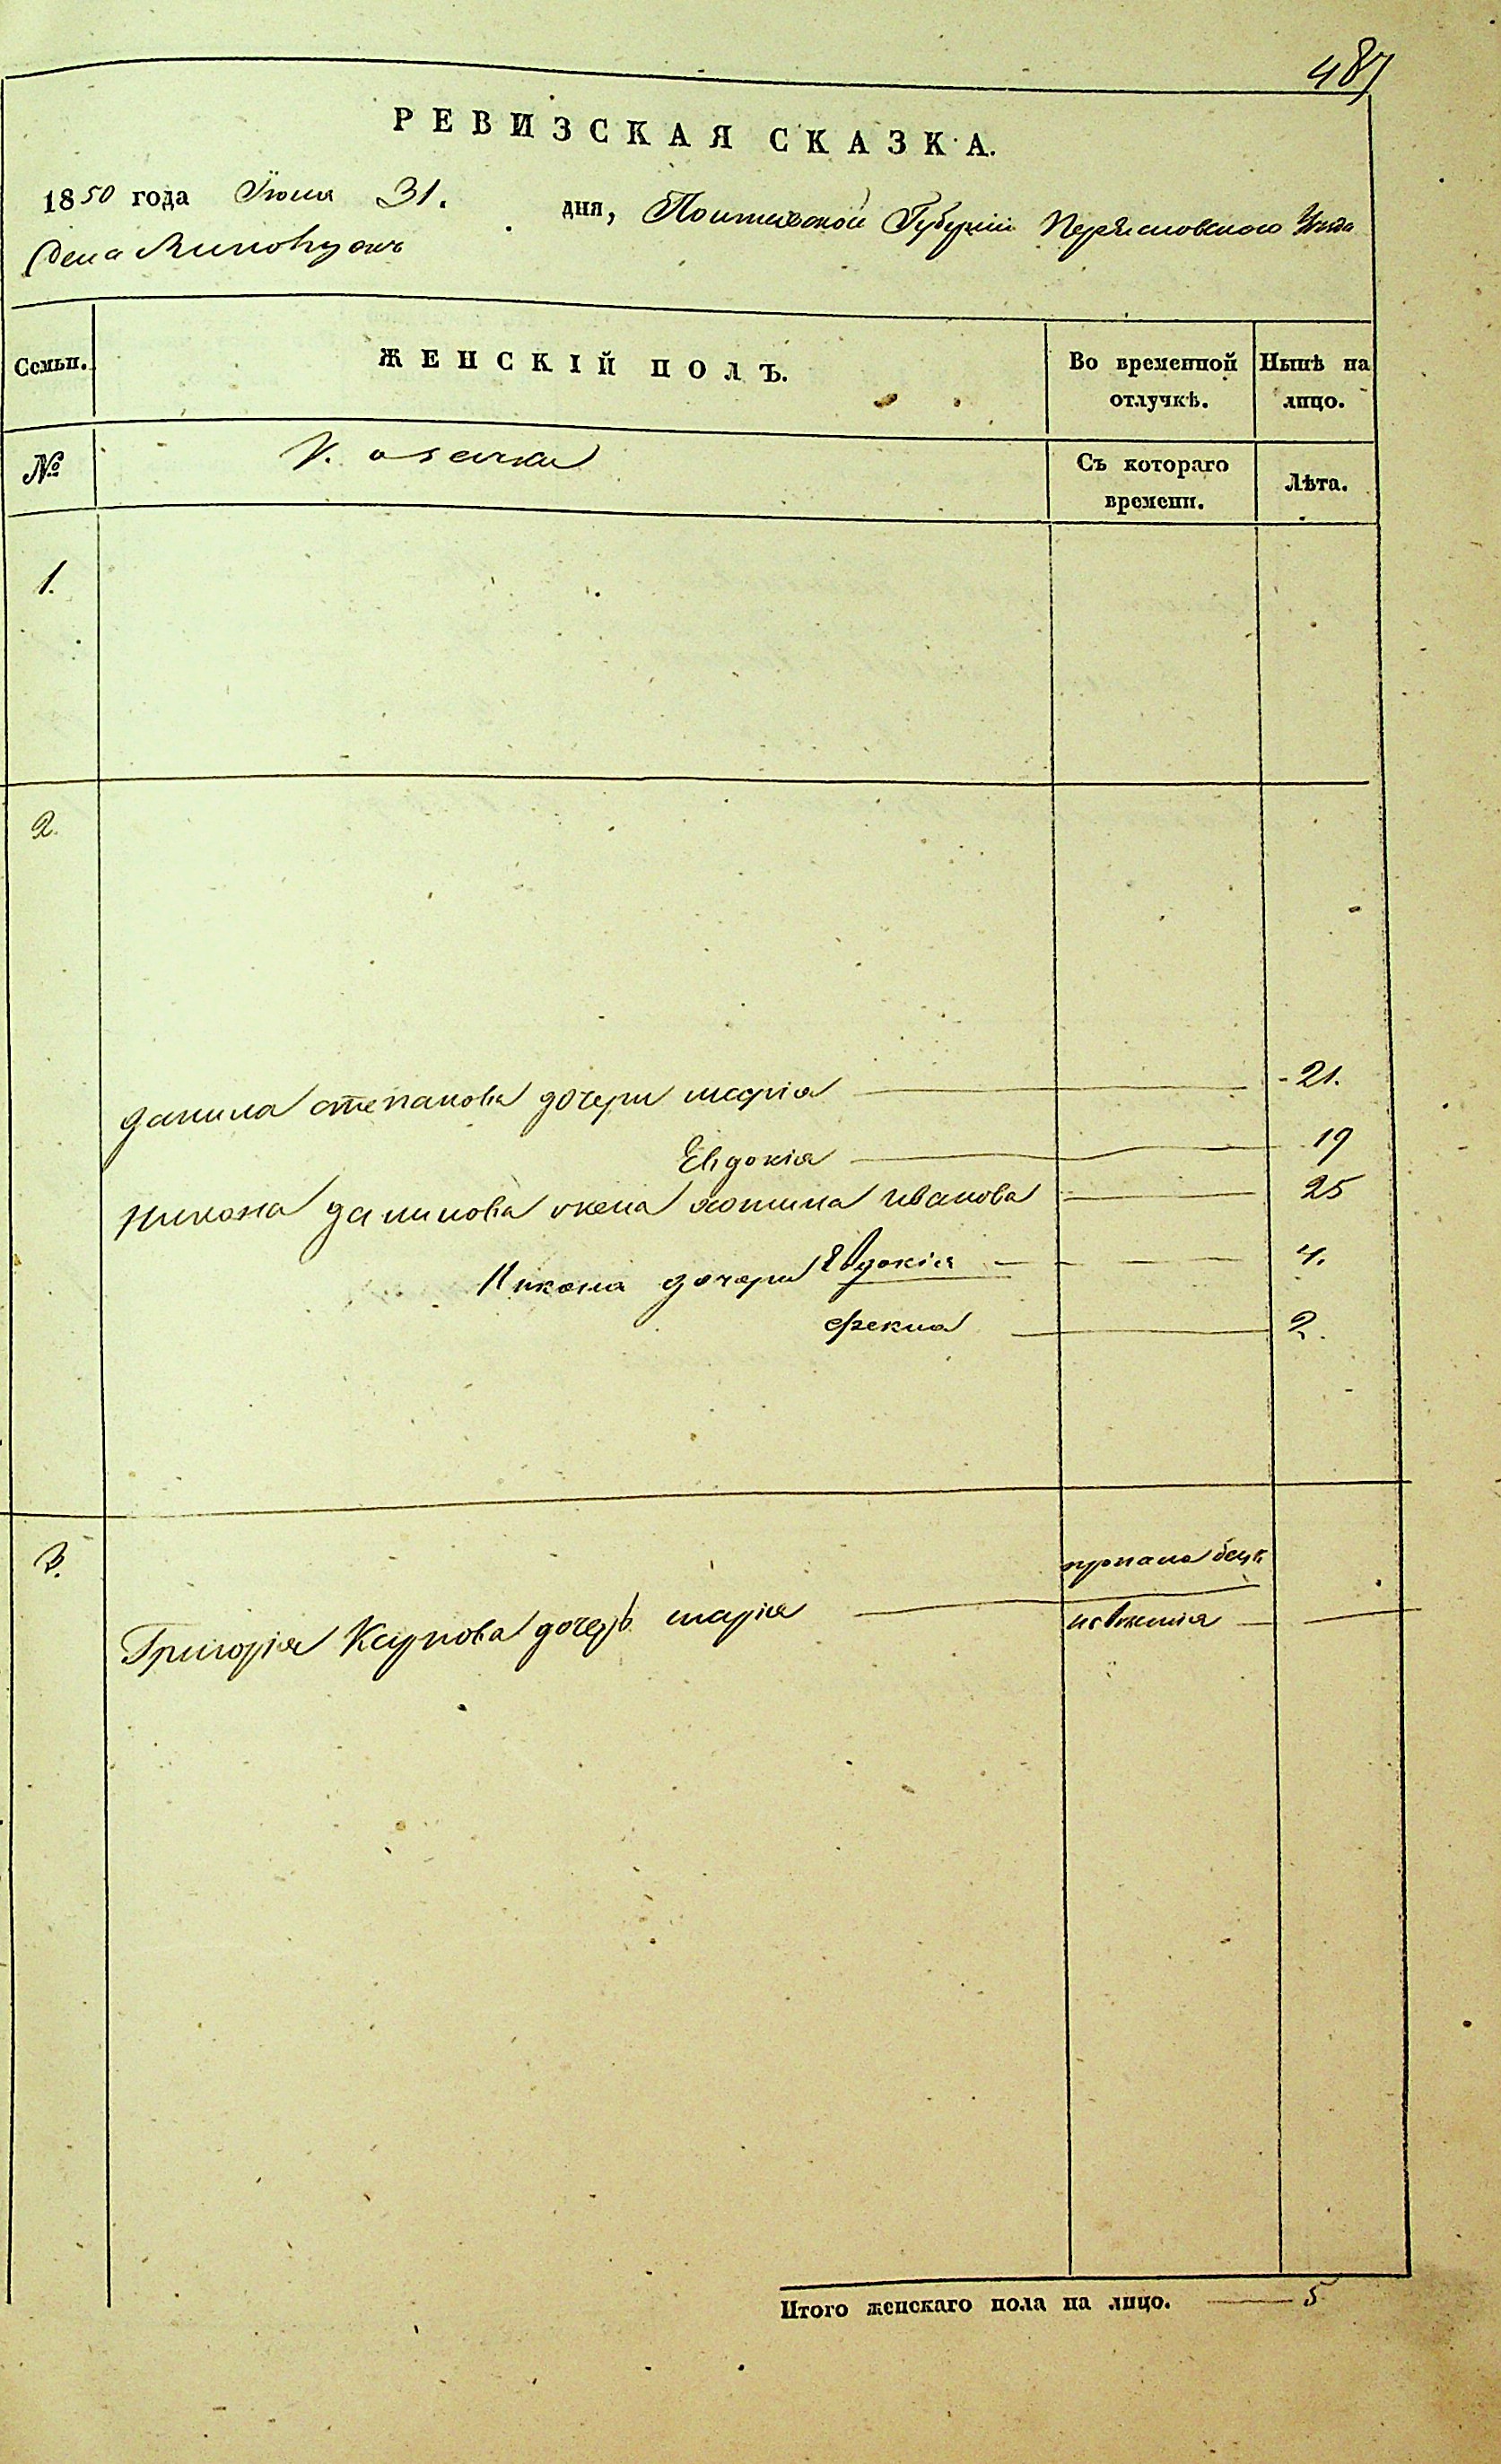 487
РЕВИЗСКАЯ СКАЗКА.
1850 года Июля 31. дня, Полтавской Губернии Переяславского Уезда
Села
Семьи. ЖЕНСКІЙ ПОЛЪ. Во временной отлучкѣ. Нынѣ на лицо.
№ Козачки Съ котораго времени. Лѣта.
1.
2.
Данила степанова дочери марія 21.
Евдокія 19
Никона данилова жена Иванова 25
Никона дочери Евдокія 4.
Фекла 2.
3. пропала безъ
Григорія Карпова дочерь марія
Итого женскаго пола на лицо. 5